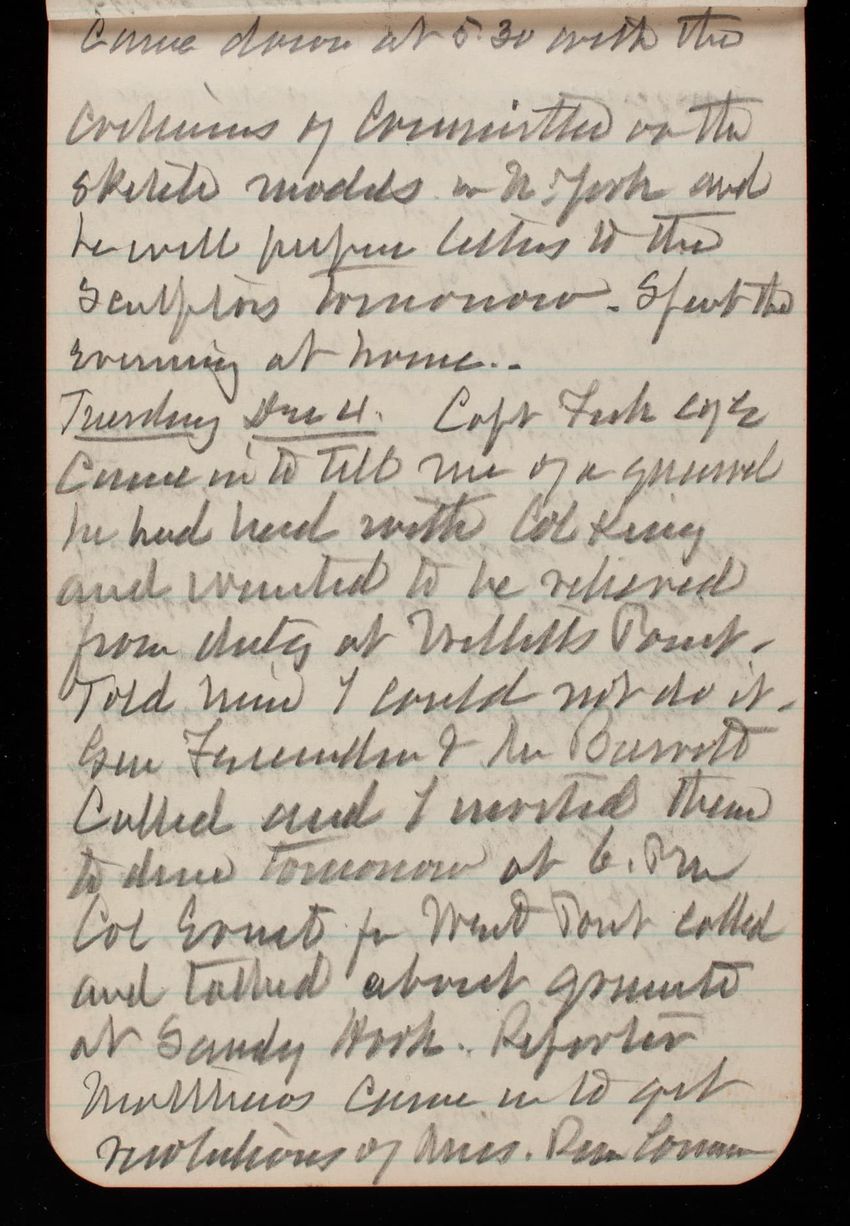 Came down at 5.30 with the
criticisms of Committee on the
sketch models in N. York and
he will prepare letters to the
Sculptors tomorrow. Spent the
evening at home..
Tuesday Dec 4. Capt Fisk
Came in to tell me of a quarrel
he had had with Col King
and wanted to be relieved
from duty at Willetts Point.
Told him I could not do it.
Gen Fessenden & Mr Barrett
Called and I invited them
to dine tomorrow at 6. P.M
Col Ernst fr West Point called
and talked about granite
at Sandy Hook. Reporter
Matthews came in to get
resolutions of Miss. Riv Comm